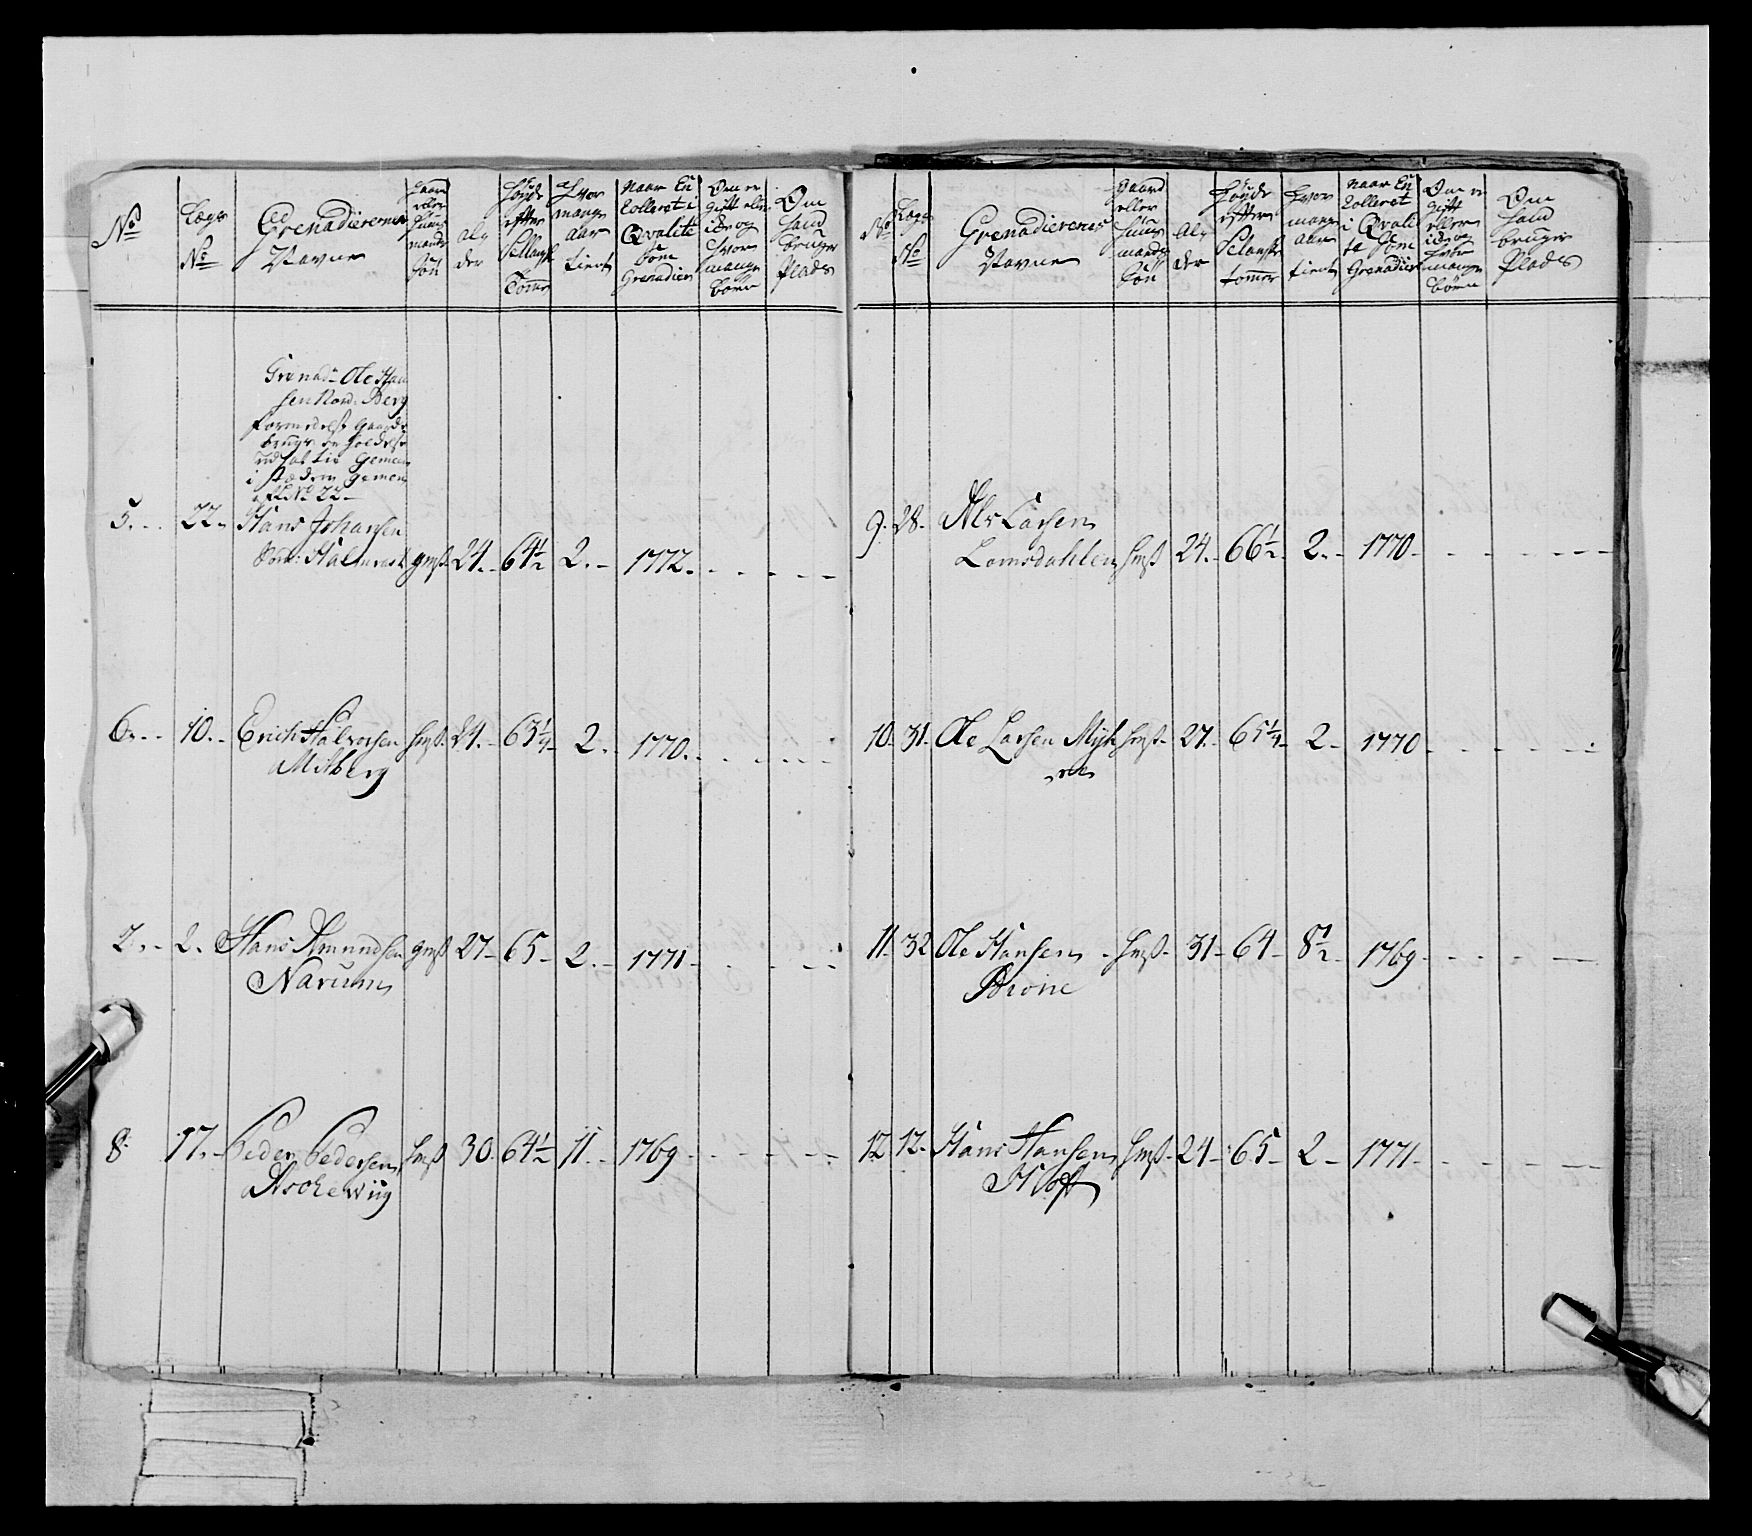 No
Lægs
No
Grenadierernes
Navne
gaard
eller
huus
mands
søn
al,
der
Høyde
efter
Sellansk
Tomer
Hvor
mange
aar
tient
Naar En
rolleret i
Qvalite
som
Grenadier
Om er
gift eller
ide og
hvor
mange
børn
Om
hand
bruger
Plads
Grenad: Ole Han
sen Nord: Berg
formedelst gaards
brugs
udsat til Gemeen
i stæden gemen
af No 22 -
5. - 22. Hans Johansen
Halmrast gmß 24. - 64 1/2 2. - 1772. - - - -
6. - 10. - Erich Halvorsen hmß. 24. - 63 1/4 2. - 1770. - - - -
Milberg
7. - 2. Hans Amundsen gmß 27 - 65 - 2. - 1771 - - - -
Narum
8. 17. - Peder Pedersen hmß 30. 64 1/2 11. - 1769 - - - -
Aschewiig
No
Lægs
No
Grenadierernes
Navne
Gaard
eller
huus
mands
søn
al,
der
Høyde
efter
Selansk
tommer
Hvor
mange
aar
tient
Naar En
rolleret
i Qvali
te som
Grenadier
Om er
gift
eller
ide og
hvor
mange
børn
Om
hand
bruger
Plads
9. 28. Nels Larsen
Lomsdahlen hmß 24. - 66 1/2 - 2. - 1770 - - - -
10. 31. Ole Larsen Myh hmß. - 27. - 65 1/4 - 2 - 1770 - - - -
ren
11. 32 Ole Hansen - hmß. - 31 - 64 - 8 1/2 - 1769 - - - -
12 12. Hans Hansen hmß. - 24 - 65 - 2 - 1771 - - - -